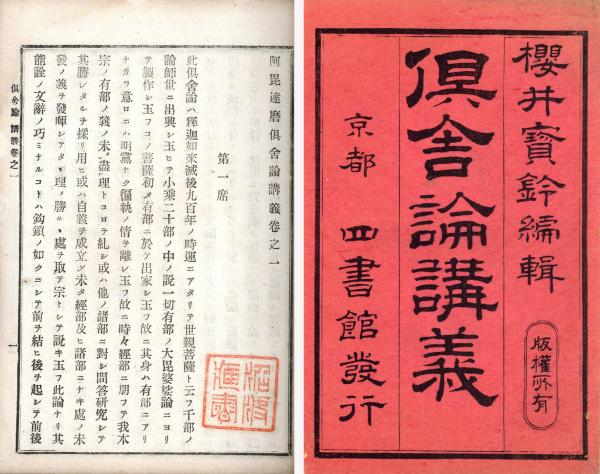 櫻井寶鈴編輯
倶舎論講義
京都 四書館發行
版權所有
阿毘達磨俱舍論講義卷之一
第一席
此俱舍論ハ釋迦如來滅後九百年ノ時運ニアタリテ世親菩薩ト云フ千部ノ
論師世ニ出興シ玉ヒテ小乘二十部ノ中ノ説一切有部ノ大毘婆娑論ニヨリ
テ製作シ玉フコノ菩薩初メ有部ニ於テ出家シ玉フ故ニ其身ハ有部ニアリ
ナガラ意ロニハ明黨ナク偏執ノ情ヲ離レ玉フ故ニ時々經部ニ朋フテ我本
宗ノ有部ノ義ノ未盡理トコロヲ糺シ或ハ他ノ諸部ニ對シ問答研究シテ
其勝レタルヲ採リ用ヒ或ハ自義ヲ成立シ未タ經部及ヒ諸部ニナキ處ノ未
發ノ義ヲ發暉シアタリ理ノ勝ルヽ處ヲ取テ宗トシテ説キ玉フ此論ナリ其
能詮ノ文辭ノ巧ミナルコトハ鈎鎖ノ如クニシテ前ヲ結ヒ後ヲ起シテ前後
俱舍論 講義卷之一
一